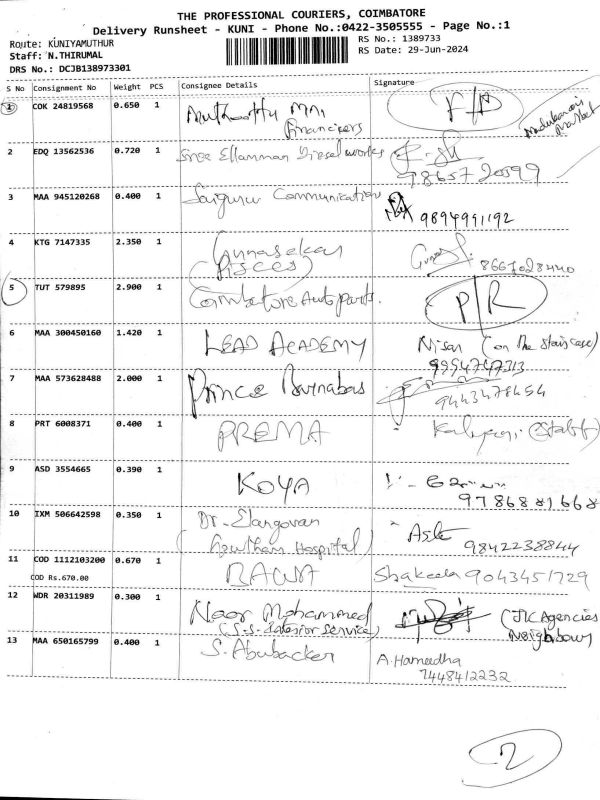 THE PROFESSIONAL COURIERS, COIMBATORE
Delivery Runsheet - KUNI - Phone No.:0422-3505555 - Page No.:1
Route: KUNIYAMUTHUR
RS No.: 1389733
Staff: N.THIRUMAL
RS Date: 29-Jun-2024
DRS No.: DCJB138973301
S No Consignment No Weight PCS Consignee Details Signature
1 COK 24819568 0.650 1 Muthoottu Mini Financiers
2 EDQ 13562536 0.720 1 Sree Ellamman Diesel works
3 MAA 945120268 0.400 1 Saiguru Communication 9894991192
4 KTG 7147335 2.350 1 Gunasekar (Pisces) 8667028440
5 TUT 579895 2.900 1 Coimbatore Auto parts. P/R
6 MAA 300450160 1.420 1 LEAD ACADEMY Nisar (on the staircase)
7 MAA 573628488 2.000 1 Prince Barnabas
8 PRT 6008371 0.400 1 PREMA (Staff)
9 ASD 3554665 0.390 1 KOYA
10 IXM 506642598 0.350 1 Dr. Elangovan (Gowtham Hospital) 9842238844
11 COD 1112103200 0.670 1 Shakeela 9043451729
COD Rs.670.00
12 WDR 20311989 0.300 1 Noor Mohammed (S.S. Interior Service) (JK Agencies Neighbour)
13 MAA 650165799 0.400 1 S. Abubacker A. Hameedha
7448412232
2